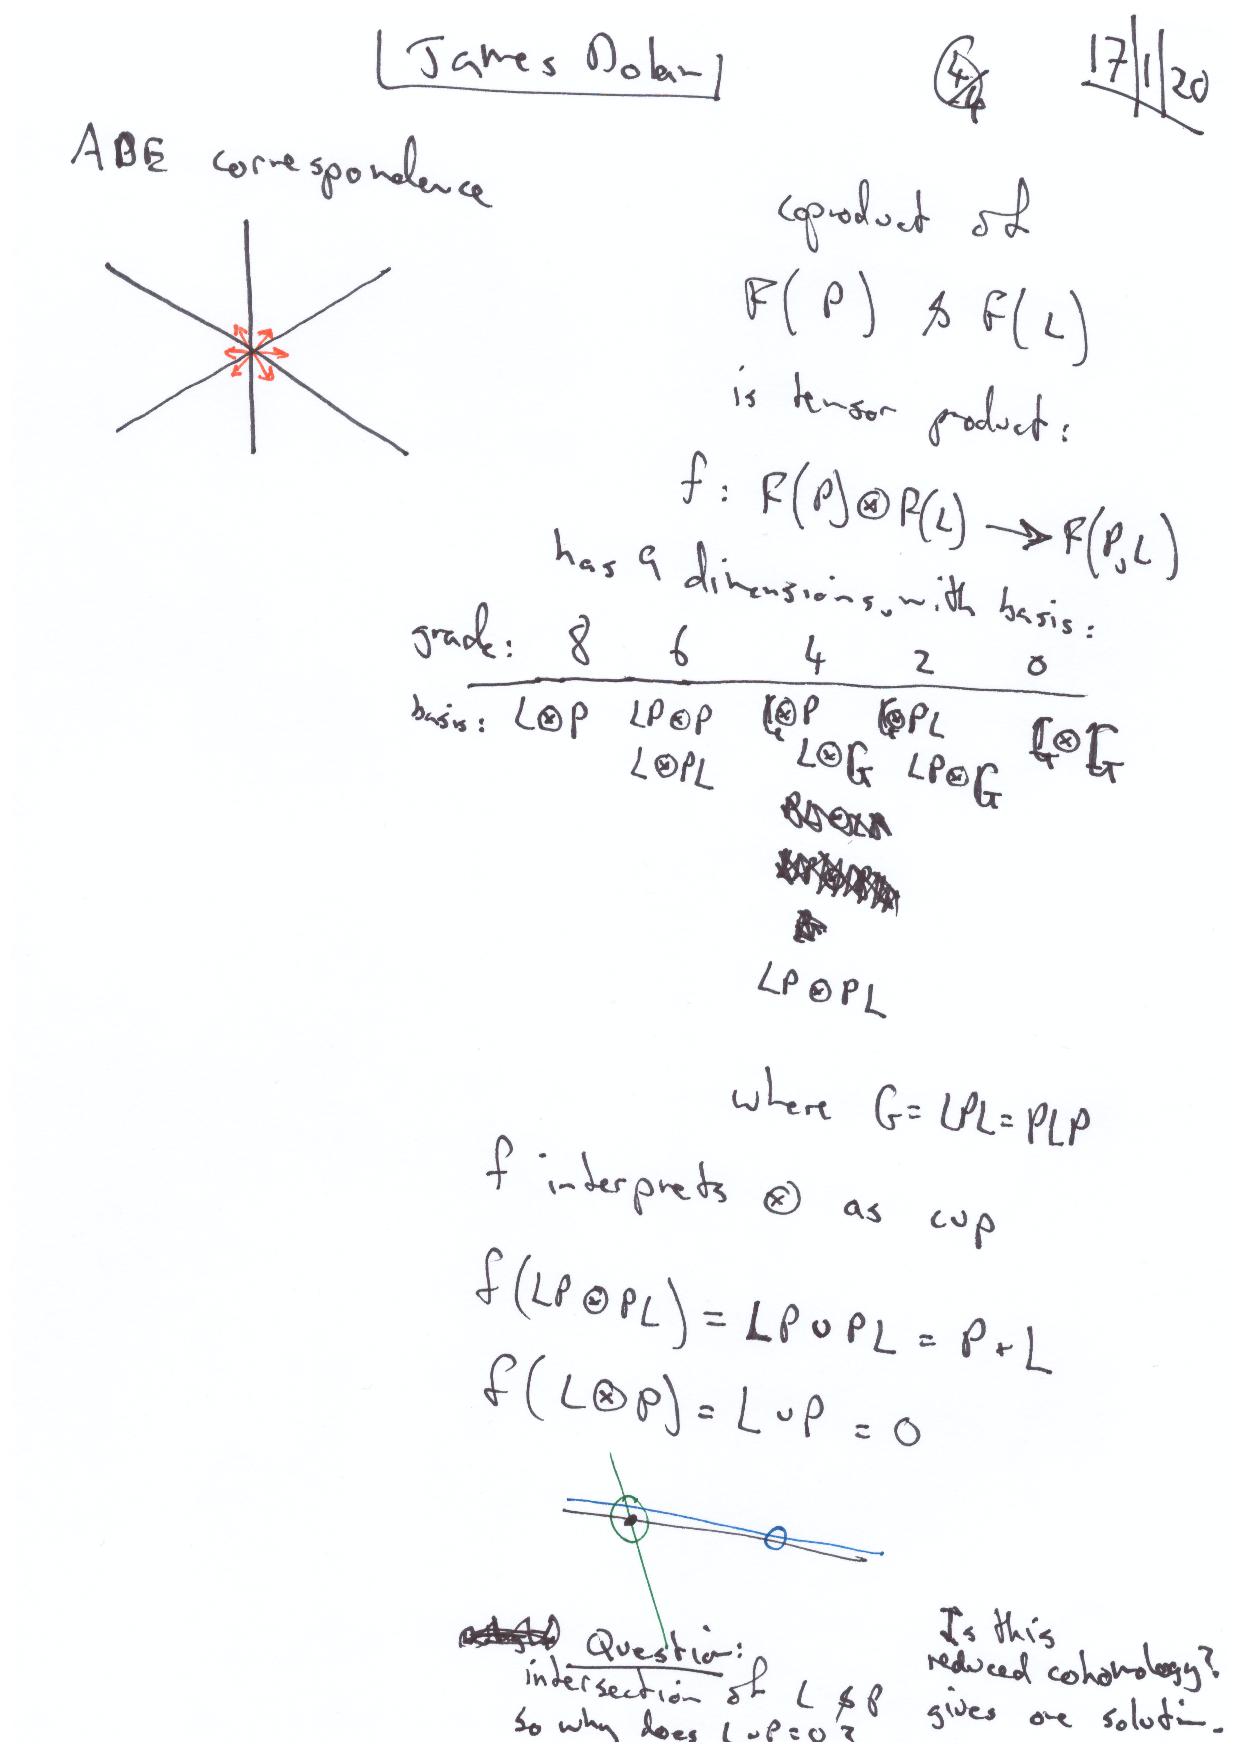 James Dolan
4/4
17/1/20
ADE correspondence
coproduct of
F(P) & F(L)
is tensor product:
f: F(P)⊗F(L) → F(P,L)
has 9 dimensions, with basis:
grade: 8 6 4 2 0
basis: L⊗P LP⊗P G⊗P G⊗PL G⊗G
L⊗PL L⊗G LP⊗G
LP⊗PL
where G = LPL = PLP
f interprets ⊗ as cup
f(LP⊗PL) = LP∪PL = P+L
f(L⊗P) = L∪P = 0
Question:
intersection of L & P
so why does L∪P=0?
Is this
reduced cohomology?
gives one solution.